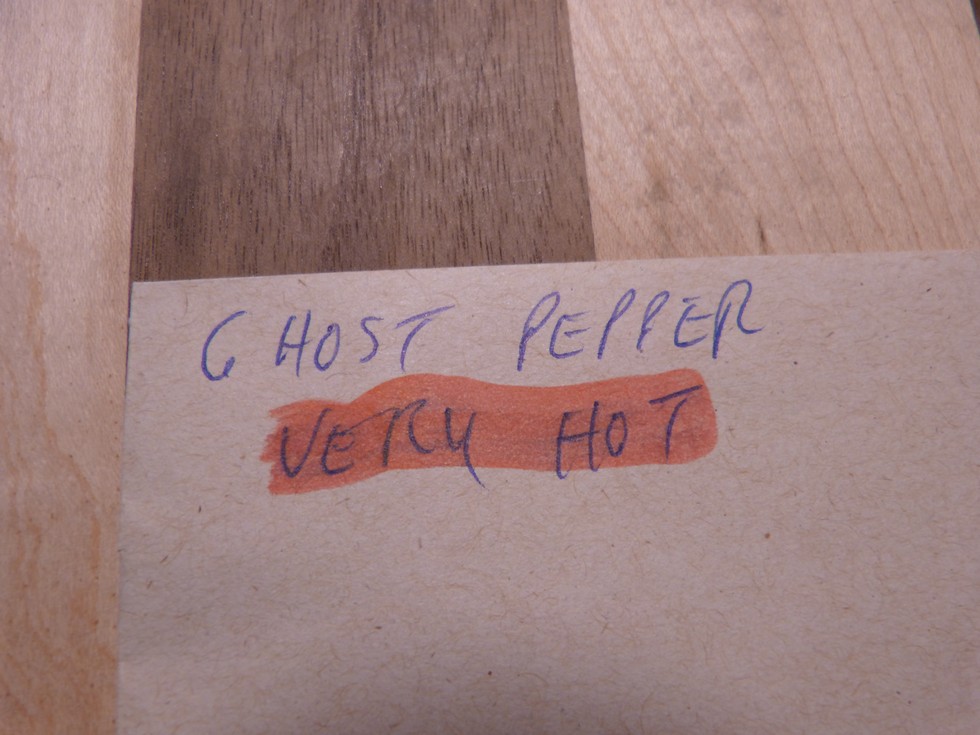 GHOST PEPPER
VERY HOT